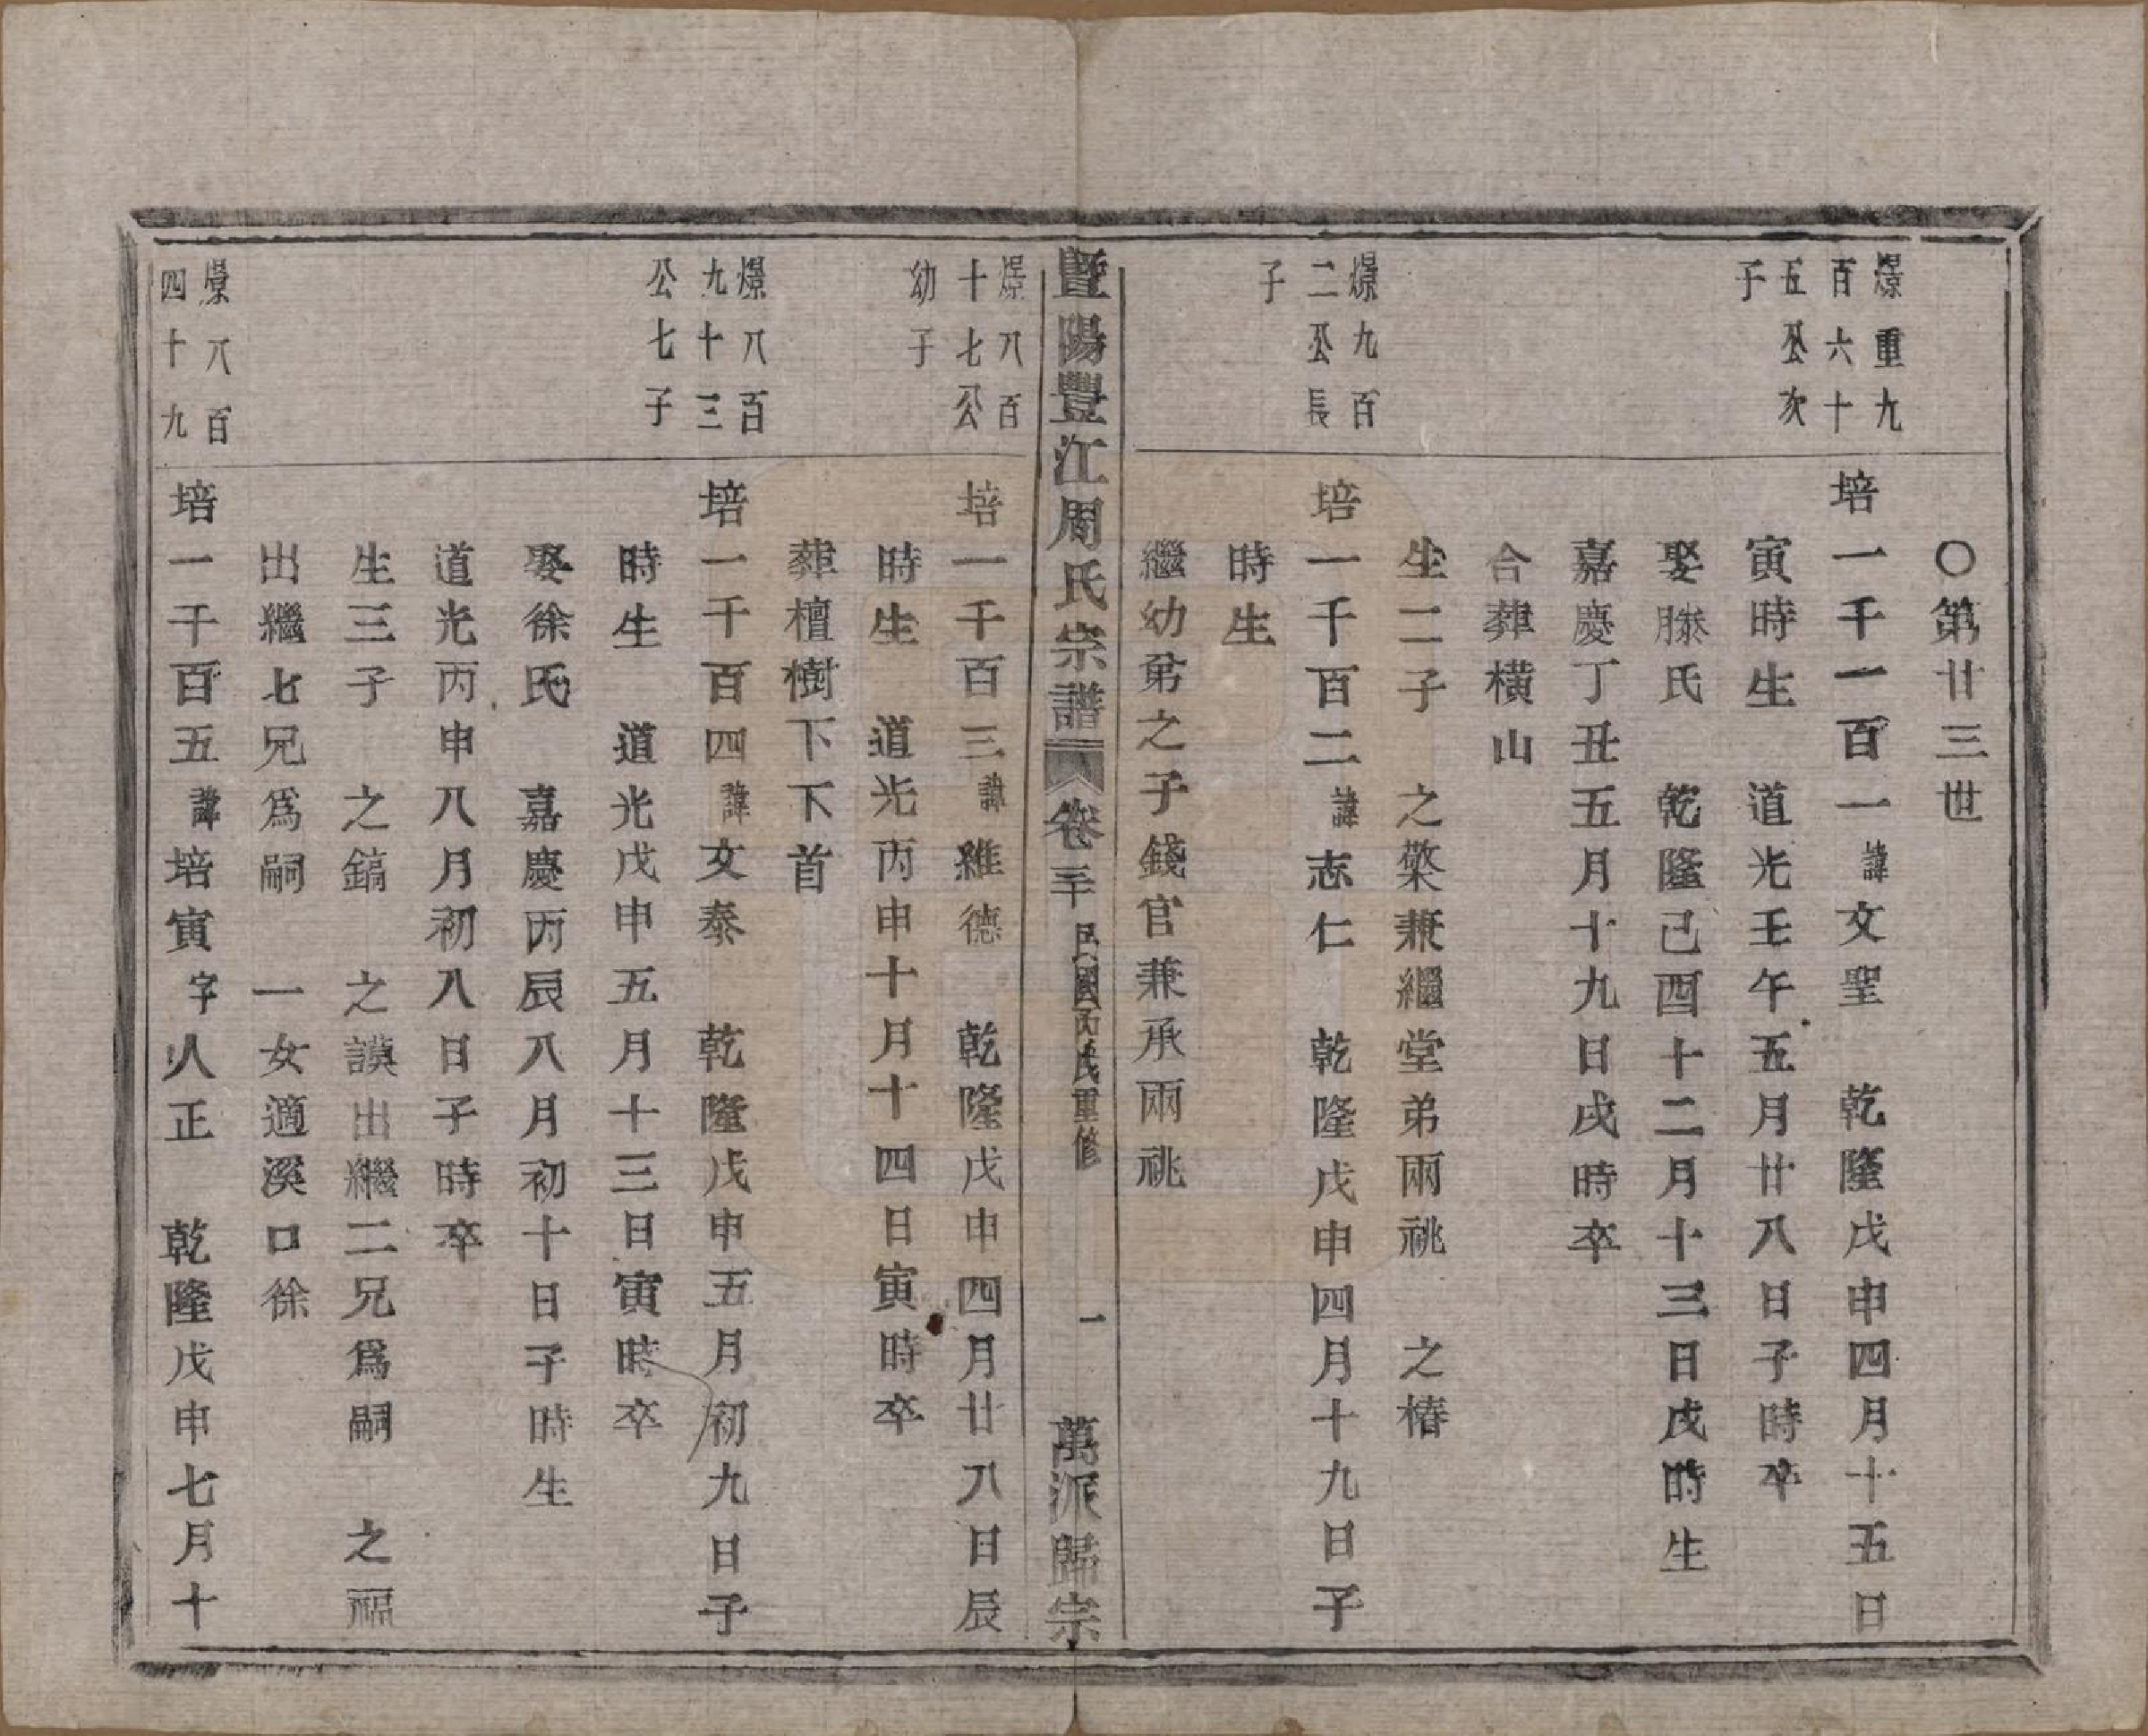 〇第廿三世
燝重九
百六十
五公次
子
培一千一百一諱文聖 乾隆戊申四月十五日
寅時生 道光壬午五月廿八日子時卒
娶滕氏 乾隆己酉十二月十三日戌時生
嘉慶丁丑五月十九日戌時卒
合葬橫山
生二子 之棨兼繼堂弟兩祧 之椿
燝九百
二公長
子
培一千百二諱志仁 乾隆戊申四月十九日子
時生
繼幼弟之子錢官兼承兩祧
暨陽豐江周氏宗譜 卷三十 民國丙戌重修 一 萬派歸宗
燝八百
十七公
幼子
培一千百三諱維德 乾隆戊申四月廿八日辰
時生 道光丙申十月十四日寅時卒
葬檀樹下下首
燝八百
九十三
公七子
培一千百四諱文泰 乾隆戊申五月初九日子
時生 道光戊申五月十三日寅時卒
娶徐氏 嘉慶丙辰八月初十日子時生
道光丙申八月初八日子時卒
生三子 之鎬 之謨出繼二兄爲嗣 之福
出繼七兄爲嗣 一女適溪口徐
燝八百
四十九
培一千百五諱培寅字人正 乾隆戊申七月十